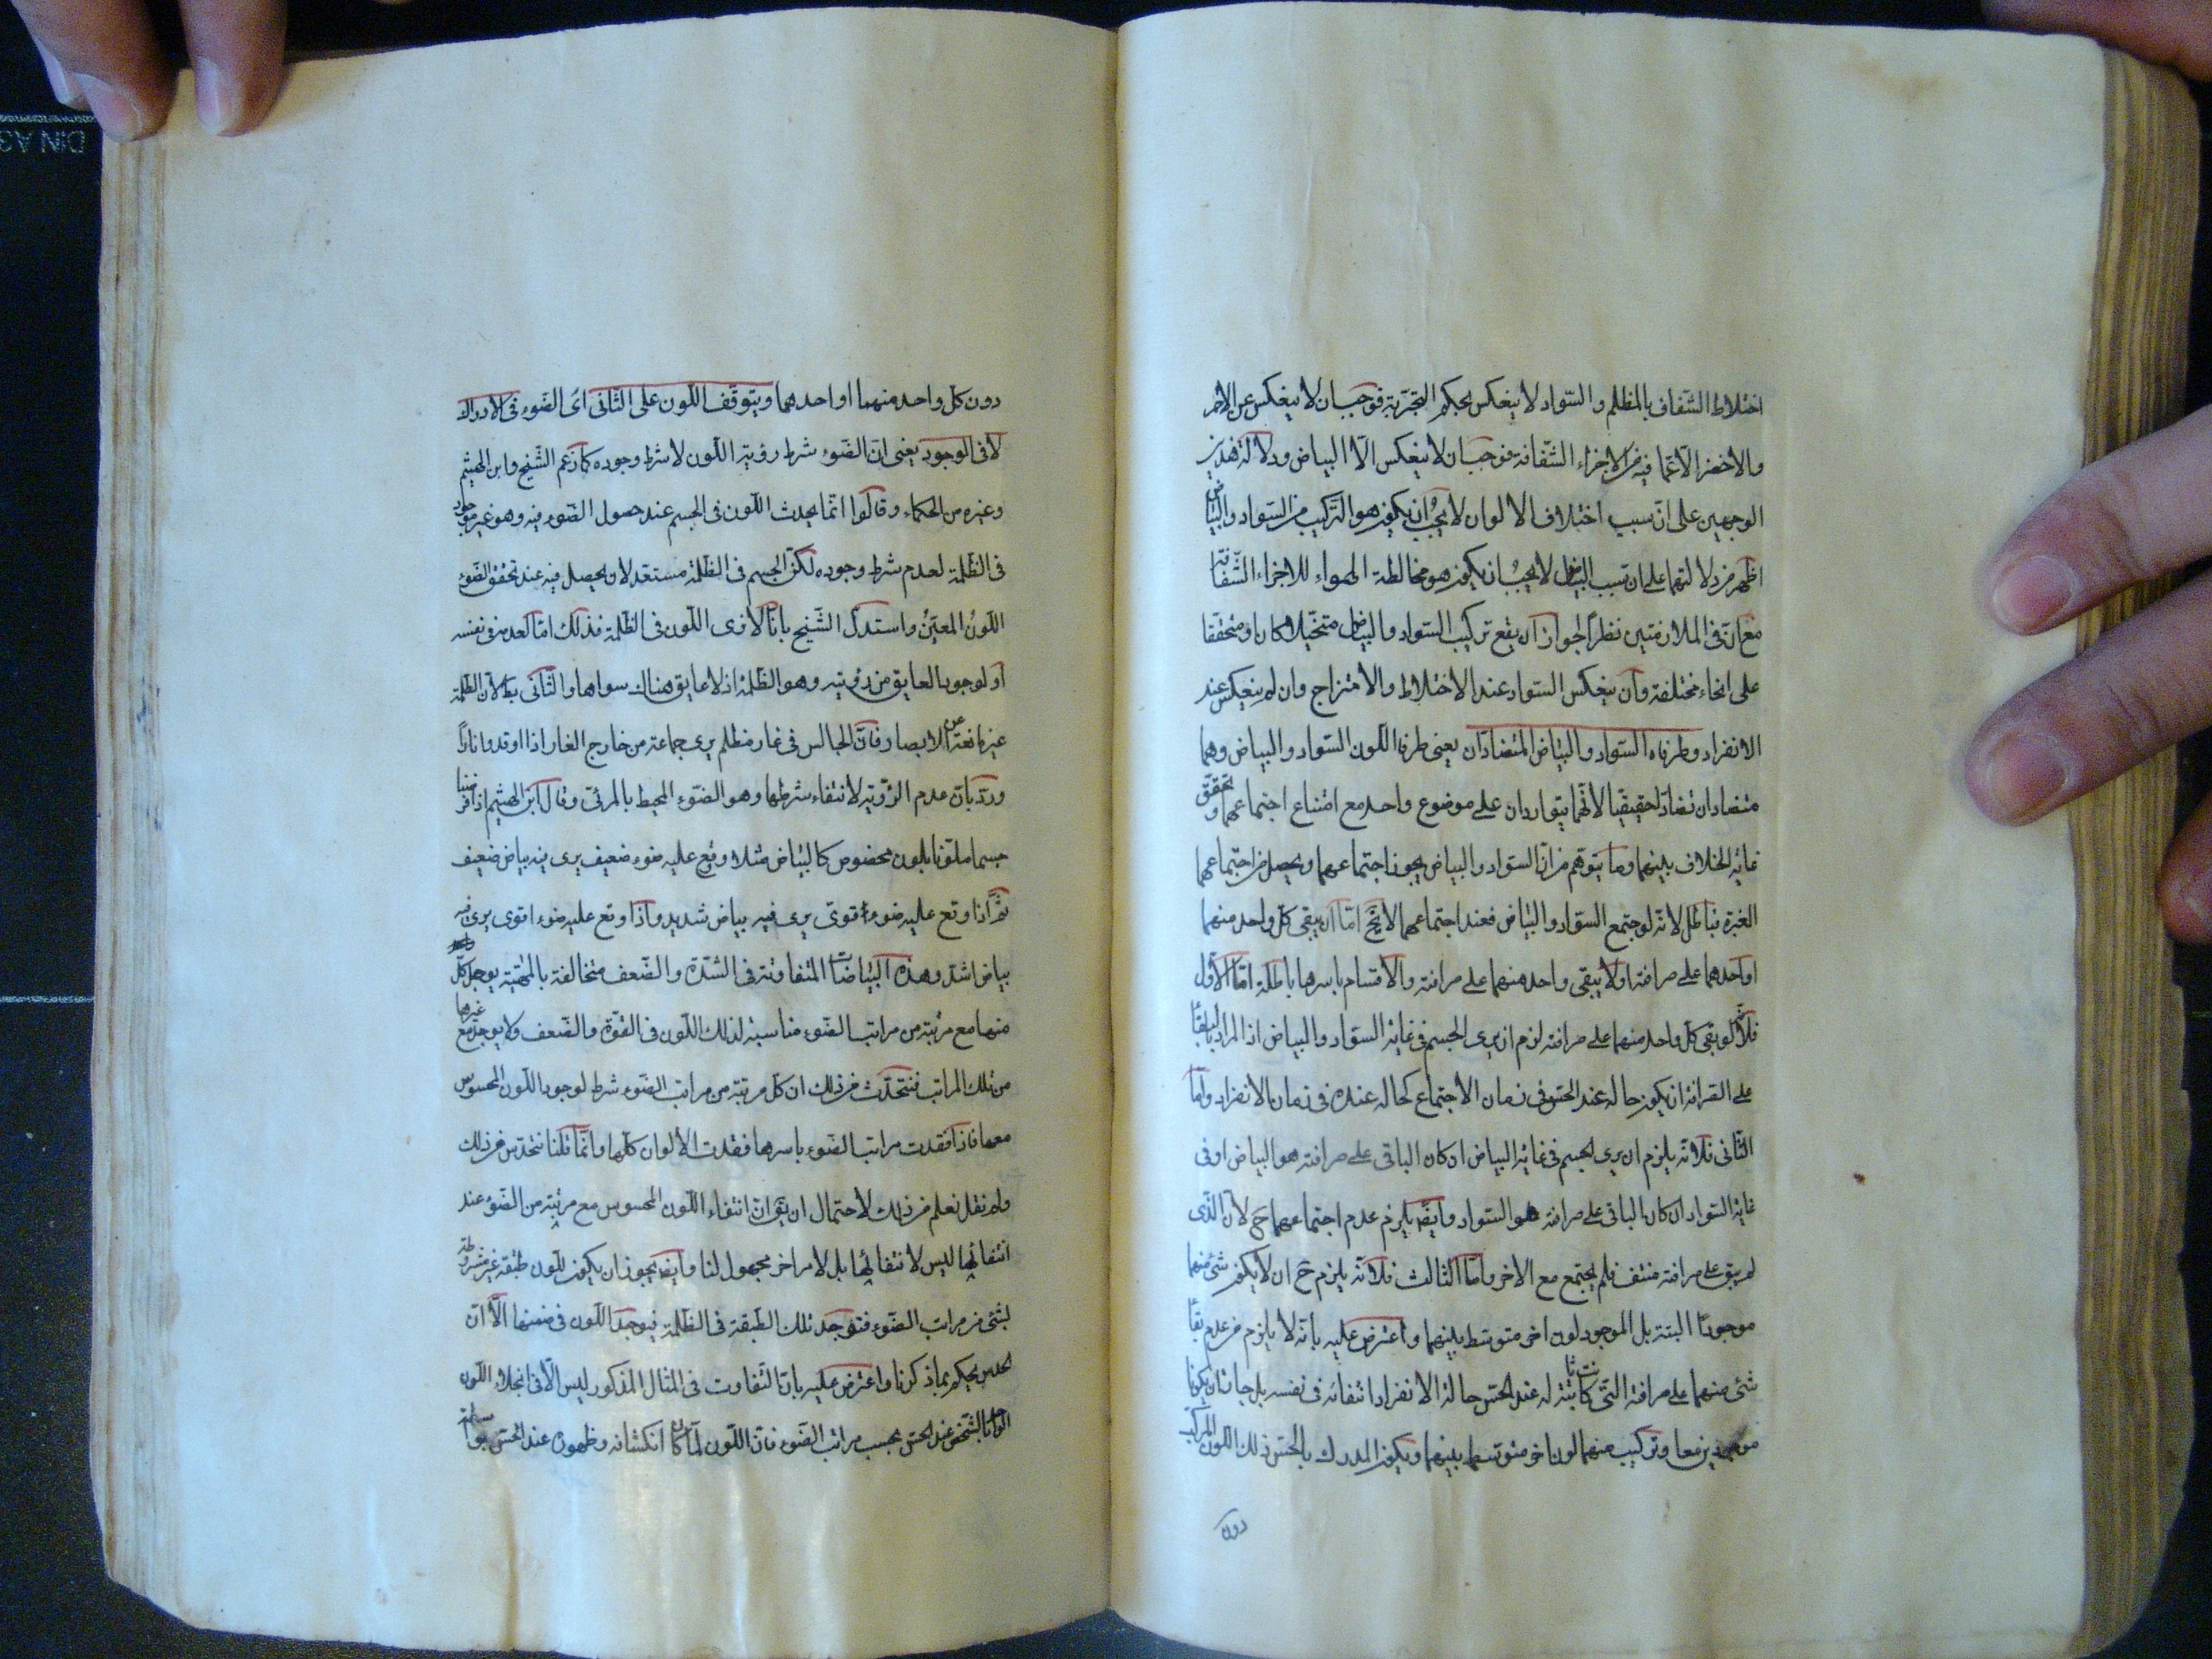 اختلاط الشفاف بالمظلم والسواد لا ينعكس بحكم التجربة فوجب ان لا ينعكس عن الاحمر
والاخضر الا عما فيه من الاجزاء الشفافة فوجب ان لا ينعكس الا البياض ودلالة هذين
الوجهين على ان سبب اختلاف الالوان لا يجب ان يكون هو التركيب من السواد والبياض
اظهر من دلالتهما على ان سبب البياض لا يجب ان يكون هو مخالطة الهواء للاجزاء الشفافة
مع ان في الملازمتين نظرا لجواز ان يقع تركيب السواد والبياض متخيلا كان او متحققا
على انحاء مختلفة وان ينعكس السواد عند الاختلاط والامتزاج وان لم ينعكس عند
الانفراد وطرفاه السواد والبياض المتضادان يعني طرفا اللون السواد والبياض وهما
متضادان تضادا حقيقيا لانهما يتواردان على موضوع واحد مع امتناع اجتماعهما وتحقق
غاية الخلاف بينهما وما يتوهم من ان السواد والبياض يجوز اجتماعهما ويحصل من اجتماعهما
الغبرة فباطل لانه لو جتمع السواد والبياض فعند اجتماعهما لا يخ اما ان يبقى كل واحد منهما
او احدهما على صرافته او لا يبقى واحد منهما على صرافته والاقسام باسرها باطلة اما الاول
فلانه لو بقى كل واحد منهما على صرافته لزم ان يرى الجسم في غاية السواد والبياض اذ المراد بالبقأ
على الصرافة ان يكون حاله عند الحس في زمان الاجتماع كحاله عنده في زمان الانفراد واما
الثاني فلانه يلزم ان يرى الجسم في غاية البياض ان كان الباقي على صرافته هو البياض او في
غاية السواد ان كان الباقي على صرافته هو السواد وايضا يلزم عدم اجتماعهما ح لان الذي
لم يبق على صرافته منتف فلم يجتمع مع الاخر واما الثالث فلانه يلزم ح ان لا يكون شئ منهما
موجودا البتة بل الموجود لون اخر متوسط بينهما واعترض عليه بانه لا يلزم من عدم بقأ
شئ منهما على صرافته التي كانت ثابتة له عند الحس حالة الانفراد انتفائه في نفسه بل جاز ان يكونا
موجودين معا وتركيب منهما لون اخر متوسط بينهما ويكون المدرك بالحس ذلك اللون المركب
دون
دون كل واحد منهما او احدهما ويتوقف اللون على الثاني اى الضوء في الادراك
لا في الوجود يعنى ان الضوء شرط رؤية اللون لا شرط وجوده كما زعم الشيخ وابن الهيثم
وغيره من الحكماء وقالوا انما يحدث اللون في الجسم عند حصول الضوء فيه وهو غير موجود
في الظلمة لعدم شرط وجوده لكن الجسم في الظلمة مستعد لان يحصل فيه عند تحقق الضوء
اللون المعين واستدل الشيخ بانا لا نرى اللون في الظلمة فذلك اما لعدمه في نفسه
او لوجود العايق من رؤيته وهو الظلمة اذ لا عايق هناك سواها والثاني بط لان الظلمة
غير مانعة عن الابصار فان الجالس في غار مظلم يرى جماعة من خارج الغار اذا اوقدوا نارا
ورد بان عدم الرؤية لانتفاء شرطها وهو الضوء المحيط بالمرئى وقال ابن الهيثم اذا فرضنا
جسما ملونا بلون مخصوص كالبياض مثلا وقع عليه ضوء ضعيف يرى فيه بياض ضعيف
ثم اذا وقع عليه ضوء قوى يرى فيه بياض شديد واذا وقع عليه ضوء اقوى يرى فيه
بياض اشد وهذه البياضات المتفاوتة في الشدة والضعف متخالفة بالمهية يوجد كل
منها مع مرتبة من مراتب الضوء مناسبة لذلك اللون في القوة والضعف ولا يوجد مع غيرها
من تلك المراتب فنتحدس من ذلك ان كل مرتبة من مراتب الضوء شرط لوجود اللون المحسوس
معها فاذا فقدت مراتب الضوء باسرها فقدت الالوان كلها وانما قلنا نتحدس من ذلك
ولم نقل نعلم من ذلك لاحتمال ان يق ان انتفاء اللون المحسوس مع مرتبة من الضوء عند
انتفائها ليس لانتفائها بل لامر اخر مجهول لنا وايضا يجوز ان يكون للون طبقة غير مشروطة
بشئ من مراتب الضوء فتوجد تلك الطبقة في الظلمة فيوجد اللون في ضمنها الا ان
الحدس يحكم بما ذكرنا واعترض عليه بان التفاوت في المثال المذكور ليس الا في انجلاء اللون
الواحد بالشخص عند الحس بحسب مراتب الضوء فان اللون لما كان انكشافه وظهوره عند الحس